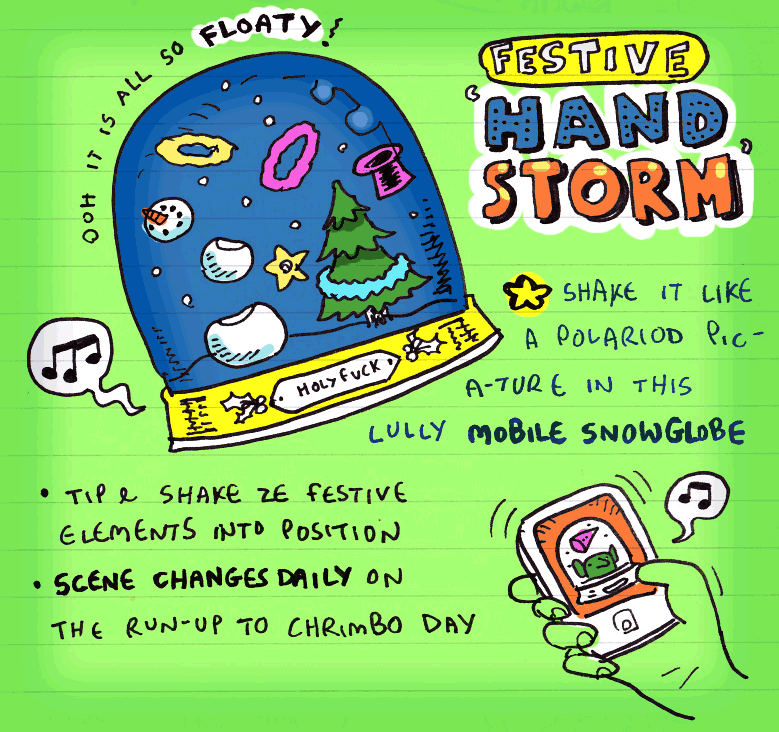 OOH IT IS ALL SO FLOATY!
FESTIVE
'HAND
STORM'
SHAKE IT LIKE
A POLARIOD PIC-
A-TURE IN THIS
LULLY MOBILE SNOWGLOBE
HOLY FUCK
• TIP & SHAKE ZE FESTIVE
ELEMENTS INTO POSITION
• SCENE CHANGES DAILY ON
THE RUN-UP TO CHRIMBO DAY